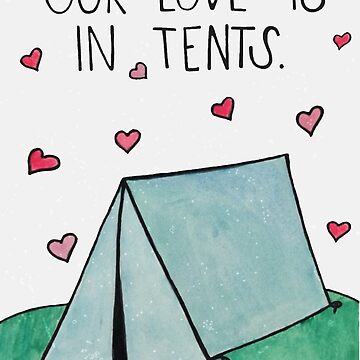 OUR LOVE IS
IN TENTS.